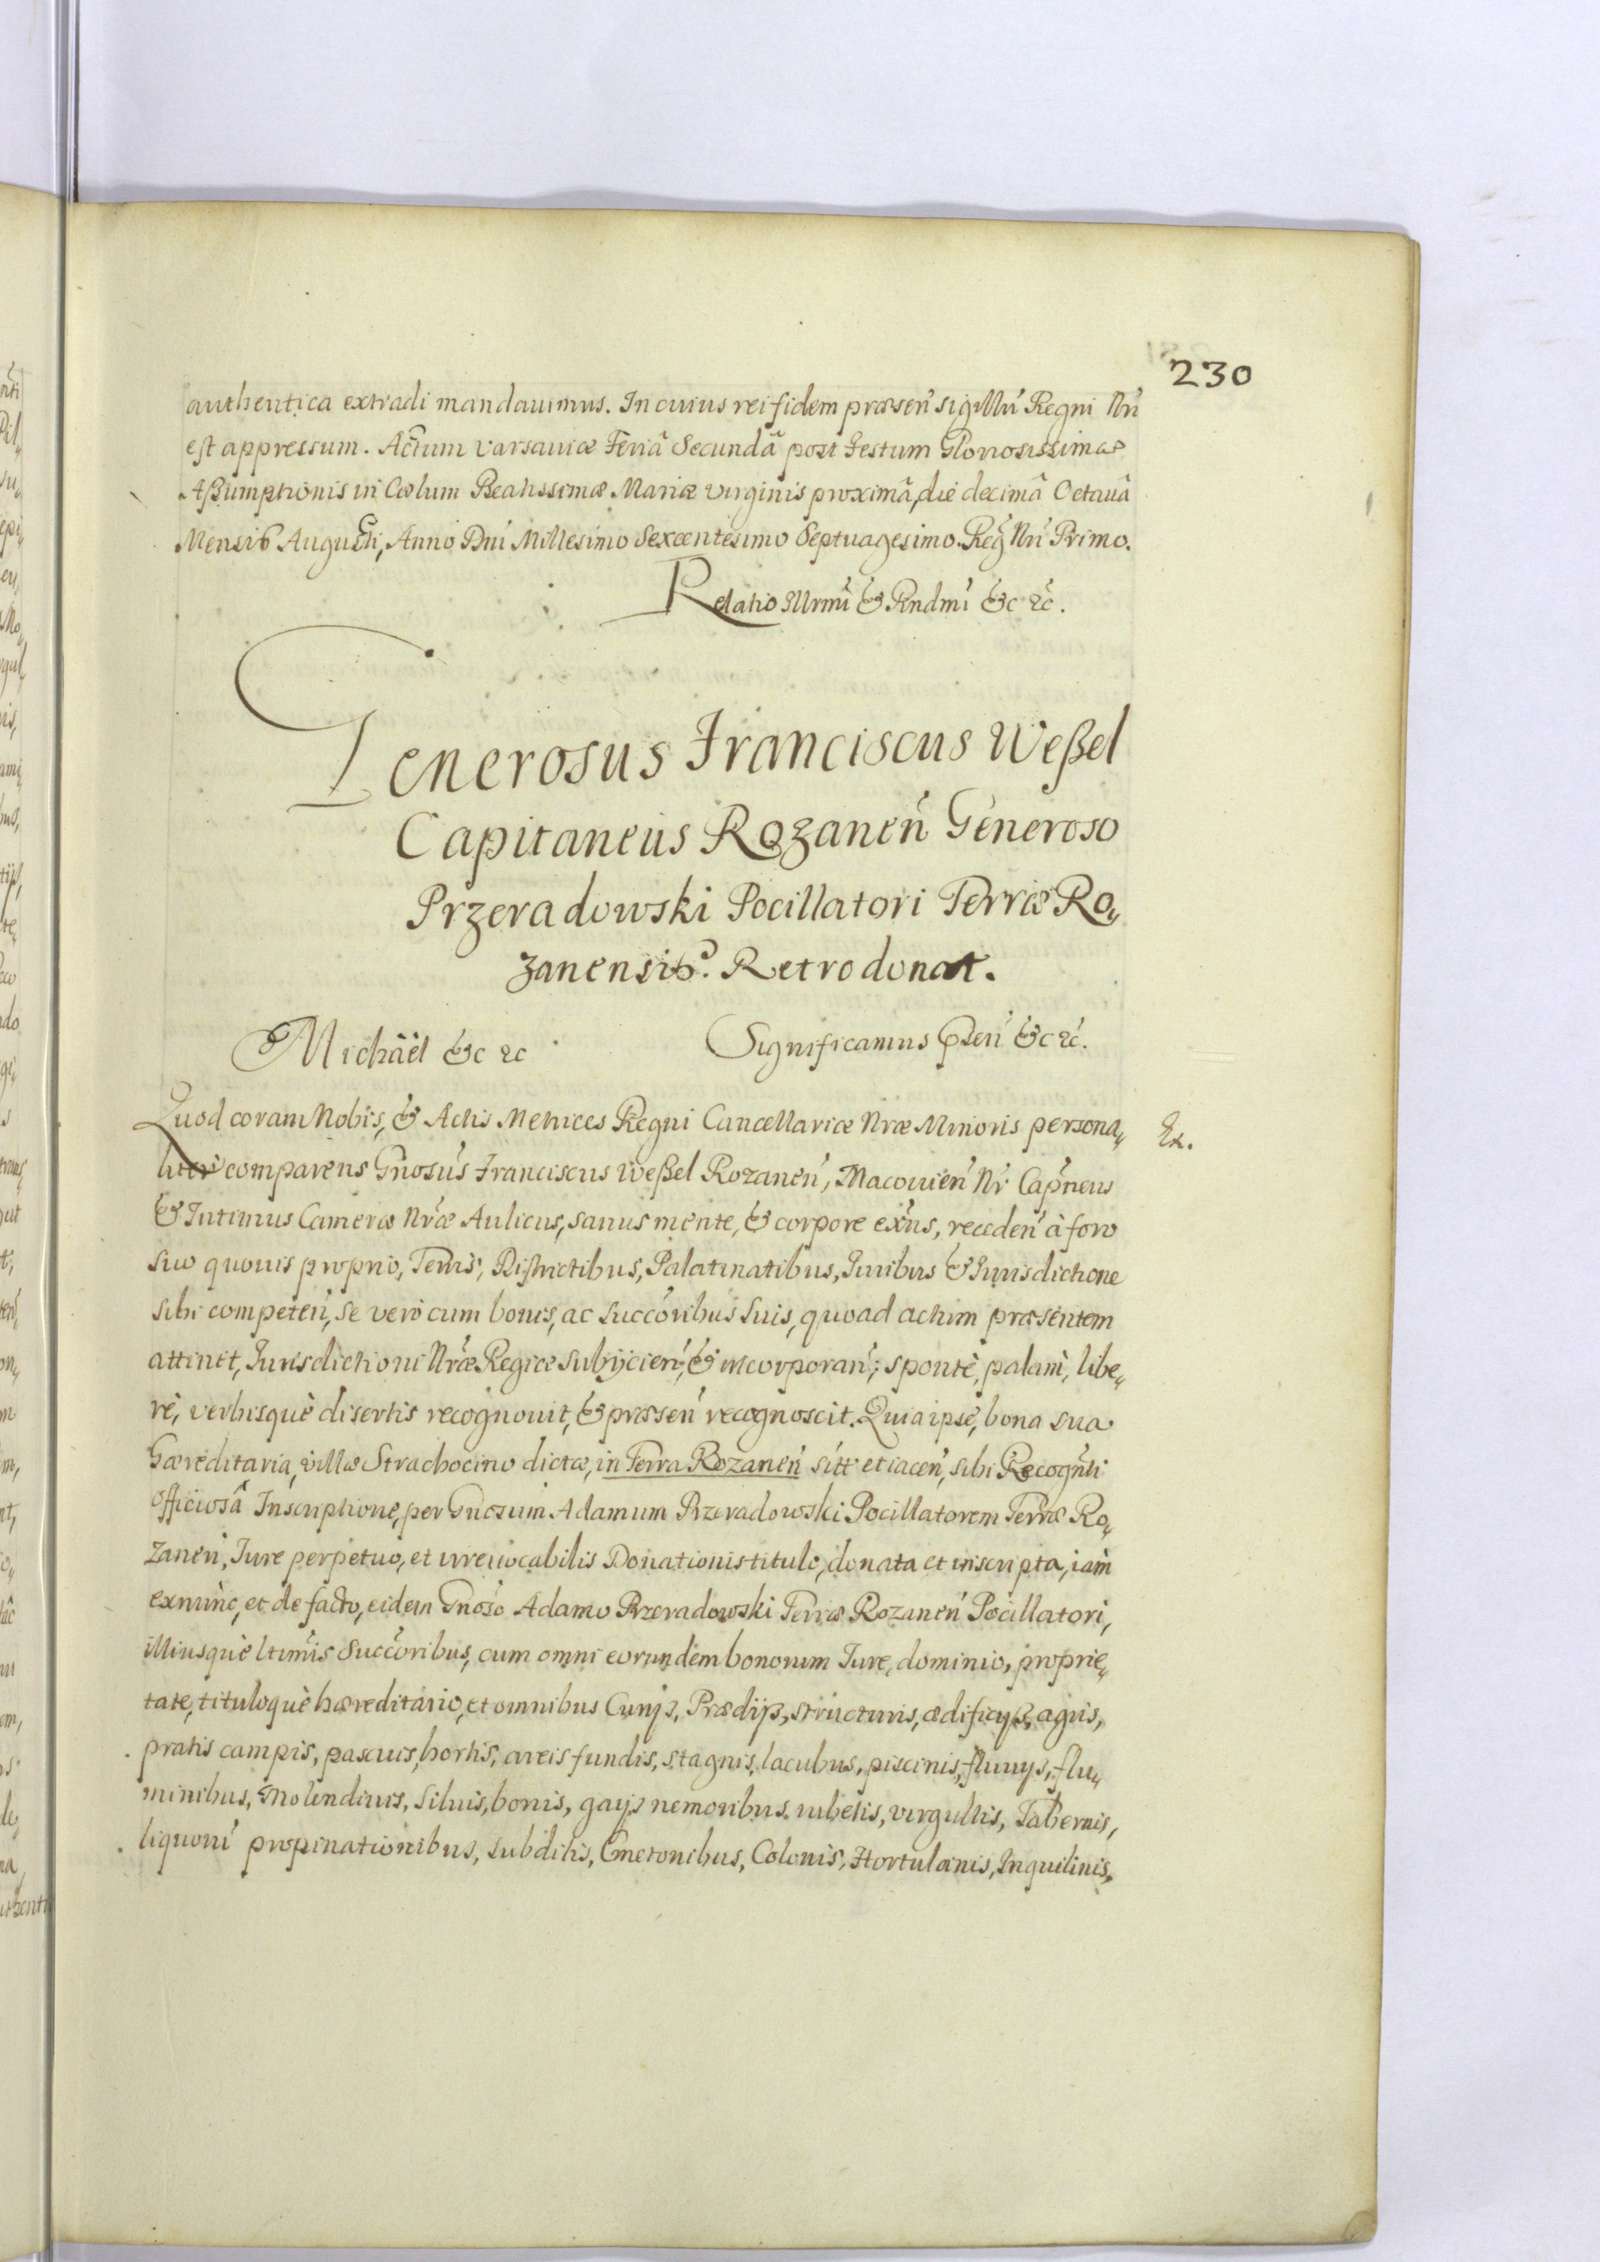 230
authentica extradi mandauimus. In cuius rei fidem præsen̄ sigillū Regni Nrī
est appressum. Actum Varsauiæ Feriâ Secundâ post Festum Gloriosissimæ
Aßumptionis in Cœlum Beatissimæ Mariæ virginis proximâ, die decimâ Octauâ
Mensis Augusti, Anno Dnī Millesimo Sexcentesimo Septuagesimo. Reg̃ Nrī Primo.
Relatio Illrmī & Rndmī &c ꝛc.
Generosus Franciscus Weßel
Capitaneus Rozanen̄ Generoso
Przeradowski Pocillatori Terræ Ro„
zanensis. Retrodonat.
Michäel &c ꝛc
Significamus pn̄tū &c ꝛc.
Quod coram Nobis, & Actis Metrices Regni Cancellariæ Nræ Minoris persona„
Ex.
liter comparens Gnosus Franciscus Weßel Rozanen̄, Macouien̄ Nr̄ Capneus
& Intimus Cameræ Nræ Aulicus, sanus mente, & corpore exn̄s, receden̄ à foro
suo quouis proprio, Terris, Districtibus, Palatinatibus, Iuribus & Iurisdictione
sibi competen̄, se vero cum bonis, ac succoribus suis, quoad actum præsentem
attinet, Iurisdictioni Nræ Regiæ subijcien̄, & incorporan̄; sponte, palam, libe„
rè, verbisquè disertis recognouit, & præsen̄ recognoscit. Quia ipse, bona sua
hæreditaria, villæ Strachocino dictæ, in Terra Rozanen̄ sitt et iacen̄, sibi Recognti
officiosâ Inscriptione, per Gnosum Adamum Przeradowski Pocillatorem Terræ Ro„
zanen̄, Iure perpetuo, et irreuocabilis Donationis titulo, donata et inscripta, iam
exnunc, et de facto, eidem Gnoso Adamo Przeradowski Terræ Rozanen̄ Pocillatori,
illiusquè ltimis Succoribus, cum omni eorundem bonorum Iure, dominio, proprie„
tate, tituloquè hæreditario, et omnibus Curijs, Prædijs, structuris, ædificijs, agris,
pratis campis, pascuis, hortis, areis fundis, stagnis, lacubus, piscinis, fluuijs, flu„
minibus, Molendinis, siluis, bonis, gays nemoribus, rubetis, virgultis, Tabernis,
liquorū propinationibus, subditis, Cmetonibus, Colonis, Hortulanis, Inquilinis,